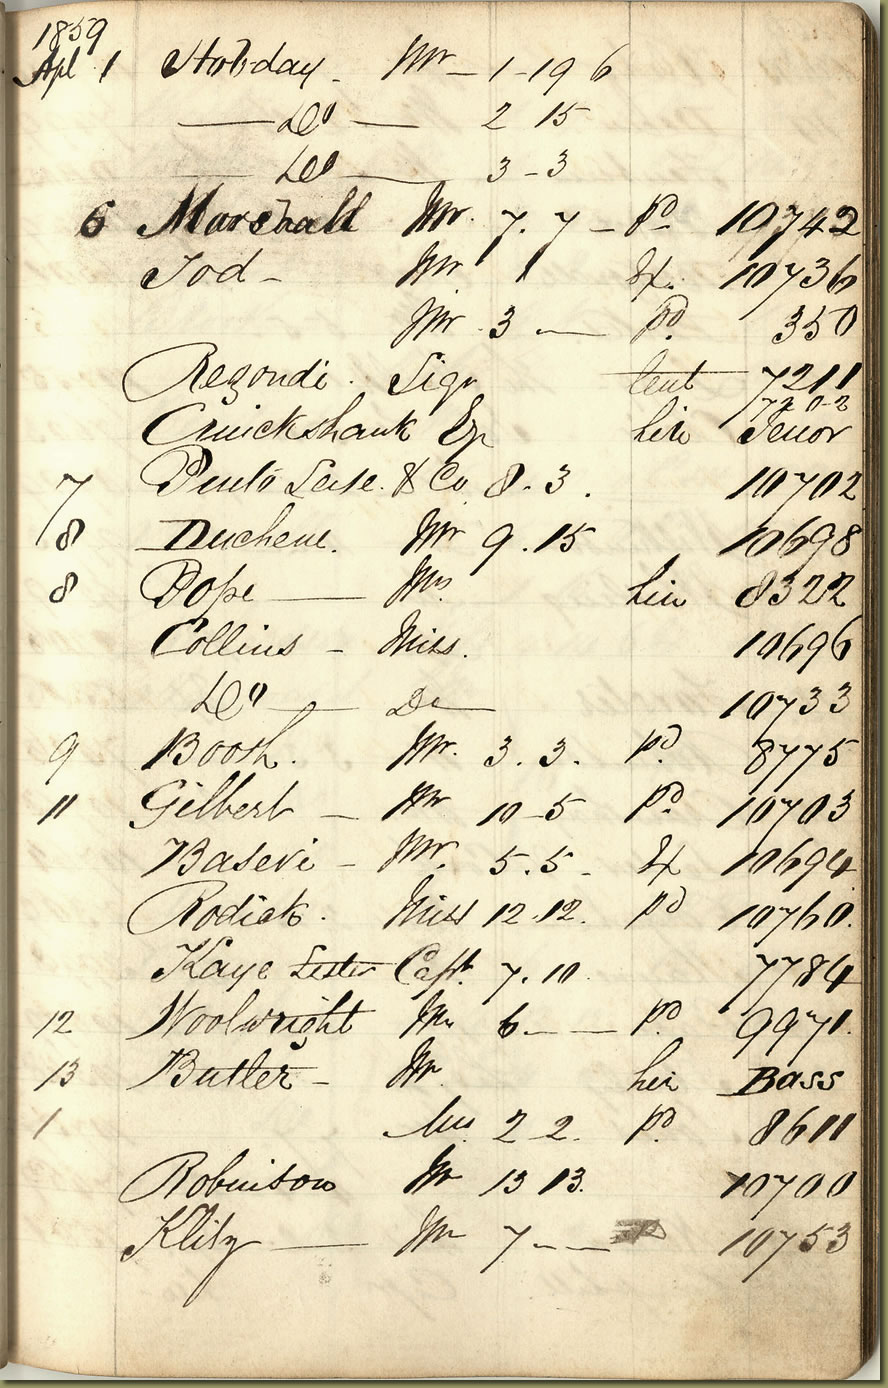 1859
Apl 1 Hobday - Mr - 1 - 19 6
— Do — 2 15
Do — 3 - 3
6 Marshall Mr. 7. 7 - pd 10742
Tod - Mr 1 Ex. 10736
Mr 3 — pd 350
Regondi. Sigr lent 7211
7202
Cruickshank Eq hire Tenor
7 Duulo Leite. & Co 8. 3. 10702
8 Duchene. Mr 9. 15 10698
8 Pope — Mrs hire 8322
Collins - Miss. 10696
Do — Do — 10733
9 Boosh. Mr. 3. 3. pd 8775
11 Gilbert - Mr 10 - 5 pd 10703
Basevi - Mr. 5. 5 - Ex 10694
Rodick. Miss 12. 12. pd 10760.
Kaye Lester Capt. 7. 10. 7784
12 Woolwright Mr 6 — pd 9971.
13 Butler - Mr. hire Bass
1 Mrs 2 2. pd 8611
Robinson Mr 13 13. 10700
Klitz — Mr 7 - - 10753